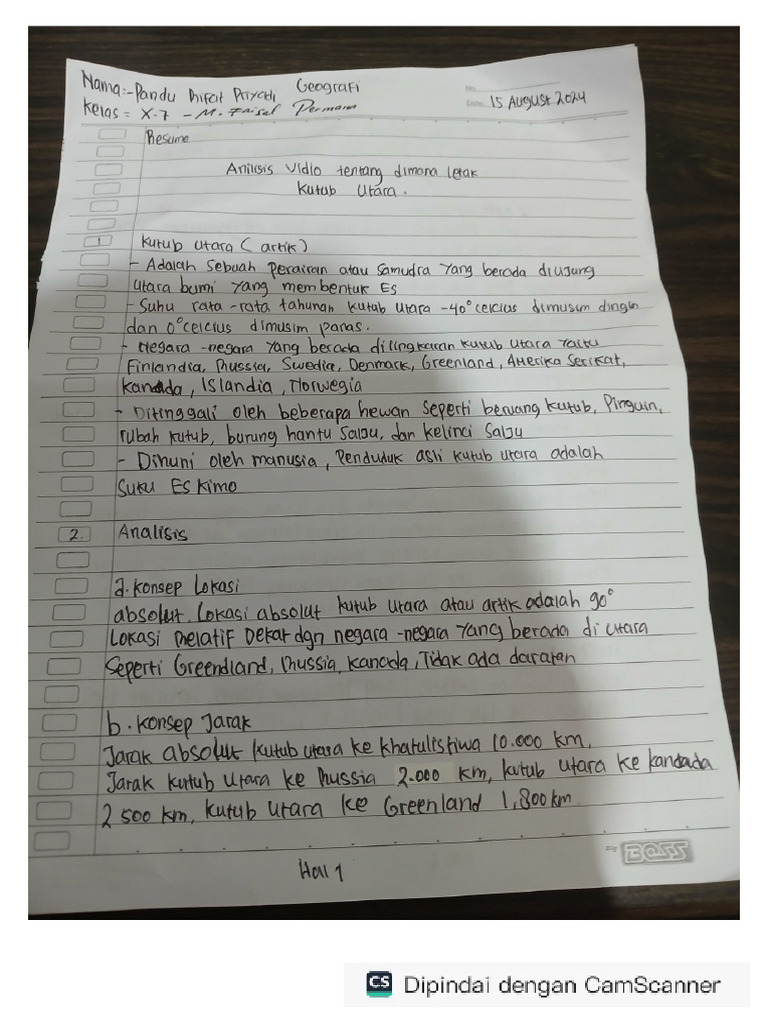 Nama:-Pandu Rifat Priyadi Geografi
Kelas = X-7 - M. Faisal Permana
No.
Date. 15 August 2024
Resume
Anilisis Vidio tentang dimana letak
Kutub Utara.
1 Kutub Utara ( artik )
- Adalah Sebuah Perairan atau Samudra Yang berada diujung
Utara bumi Yang membentuk Es
- Suhu rata-rata tahunan Kutub Utara -40° celcius dimusim dingin
dan 0° celcius dimusim panas.
- Negara-negara Yang berada dilingkaran Kutub Utara Yaitu
Finlandia, Russia, Swedia, Denmark, Greenland, Amerika Serikat,
Kanada, Islandia, Norwegia
- Ditinggali oleh beberapa hewan Seperti beruang Kutub, Pinguin,
rubah Kutub, burung hantu Salju, dan Kelinci Salju
- Dihuni oleh manusia, Penduduk asli Kutub Utara adalah
Suku Eskimo
2. Analisis
a. Konsep Lokasi
absolut. Lokasi absolut Kutub Utara atau artik adalah 90°
Lokasi Relatif Dekat dgn negara-negara Yang berada di Utara
Seperti Greendland, Russia, Kanada, Tidak ada daratan
b. Konsep Jarak
Jarak absolut Kutub Utara ke Khatulistiwa 10.000 km,
Jarak Kutub Utara ke Russia 2.000 km, Kutub Utara ke Kandada
2 500 km, Kutub Utara ke Greenland 1,800 km
BOSS
Hal 1
CS Dipindai dengan CamScanner